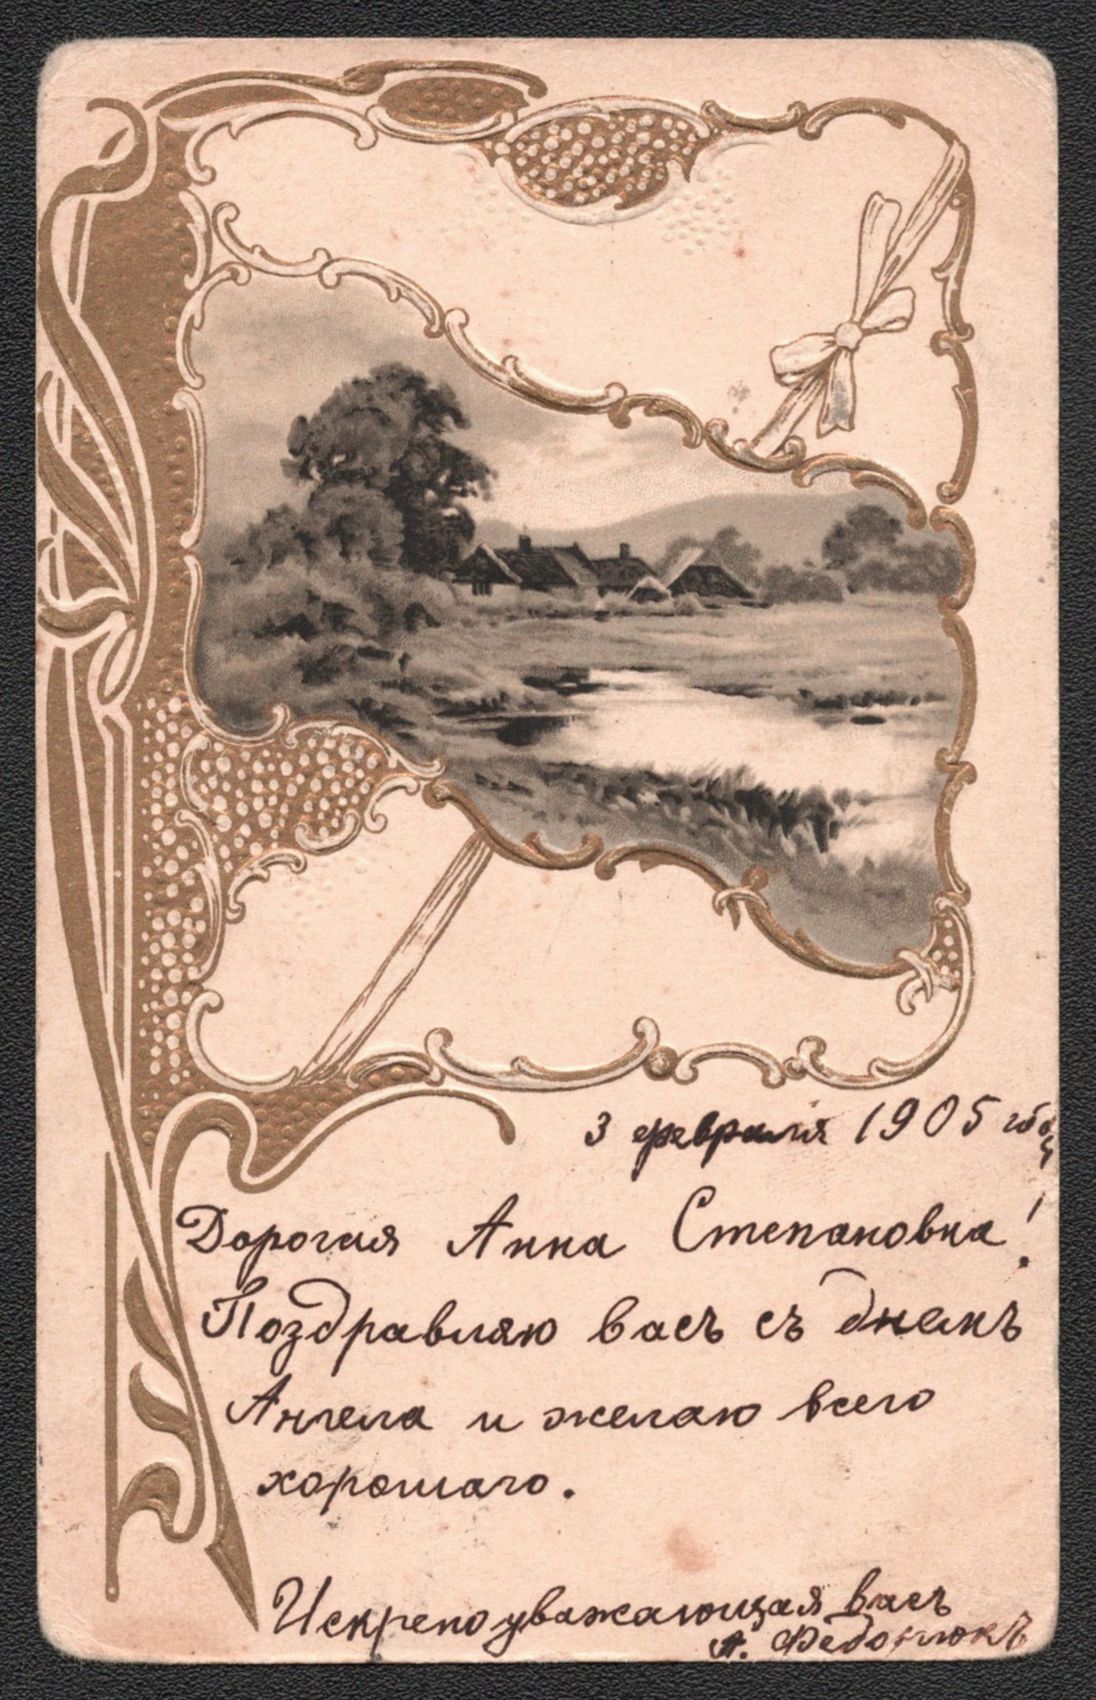 3 февраля 1905 года
Дорогая Анна Степановна!
Поздравляю васъ съ днемъ
Ангела и желаю всего
хорошаго.
Искрено уважающая васъ
А.